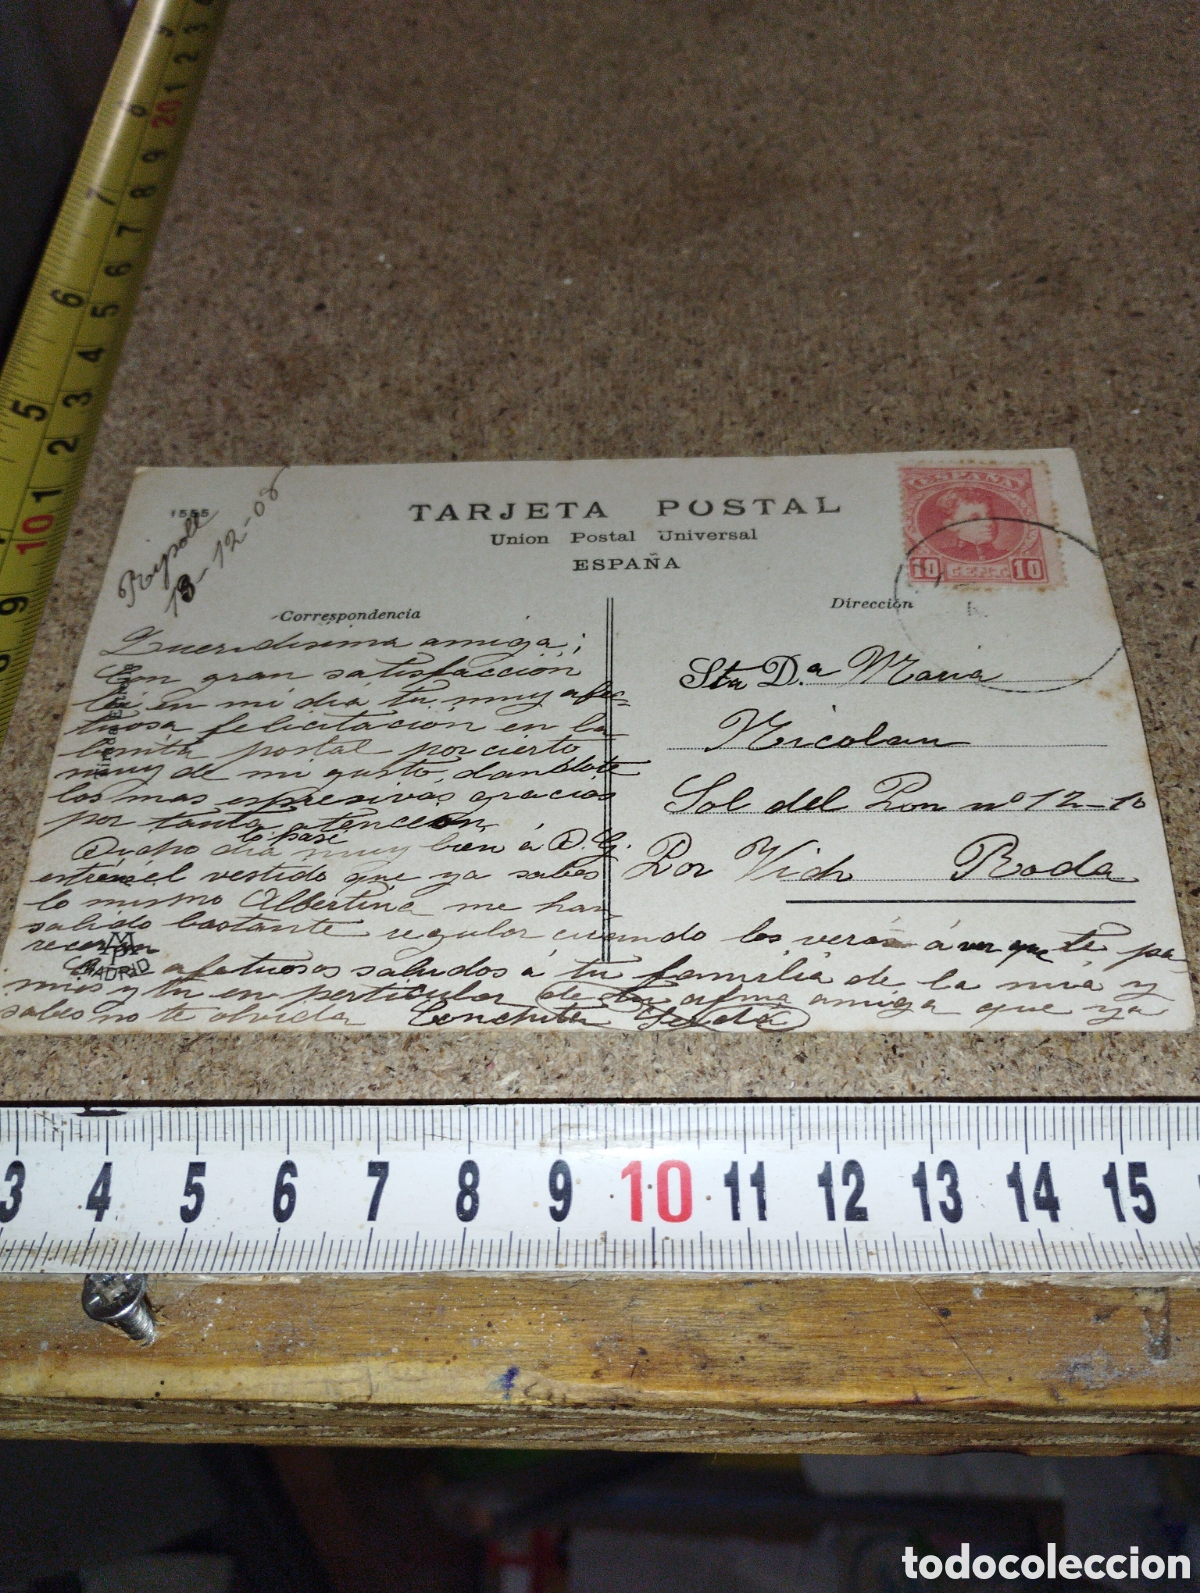 1555
Ripoll
13-12-08
TARJETA POSTAL
Union Postal Universal
ESPAÑA
ESPAÑA
10 CENT. 10
Correspondencia
Queridisima amiga;
Con gran satisfacción
lei en mi dia tu muy afec=
tuosa felicitación en la
bonita postal por cierto
muy de mi gusto, dandote
las mas espresivas gracias
por tanta atención
Dicho dia lo pasé muy bien á D. G.
estrené el vestido que ya sabes
lo mismo Albertina me han
salido bastante regular cuando los verás á ver que te pa-
recerán
afetuosos saludos á tu familia de la mia y
mios y tu en perticular de tu amiga que ya
sabes no te olvida Conchita
MADRID
Dirección
Sta D.ª Maria
Nicolau
Sol del Pon nº 12-10
Por Vich Roda
3 4 5 6 7 8 9 10 11 12 13 14 15
5 6 7 8
9 10 1 2 3 4 5 6 7 8 9 20 1 2 3
todocoleccion